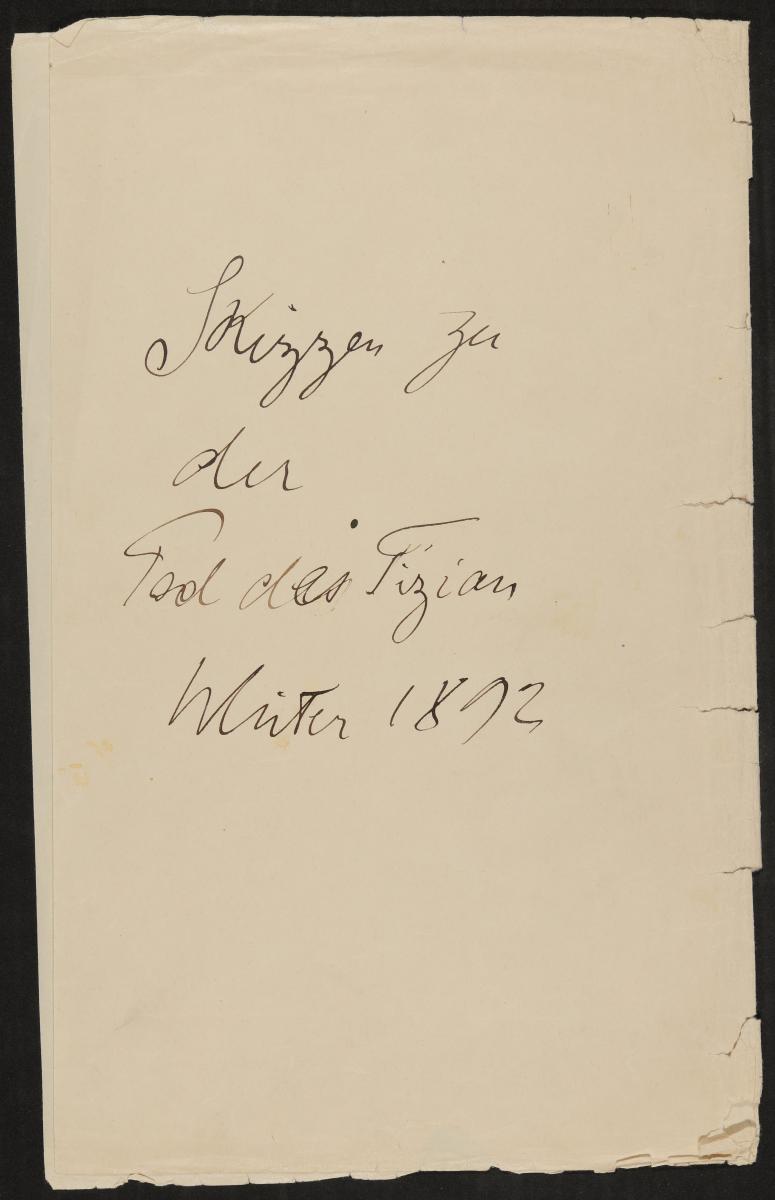 Skizzen zu
der
Tod des Tizian
Winter 1892